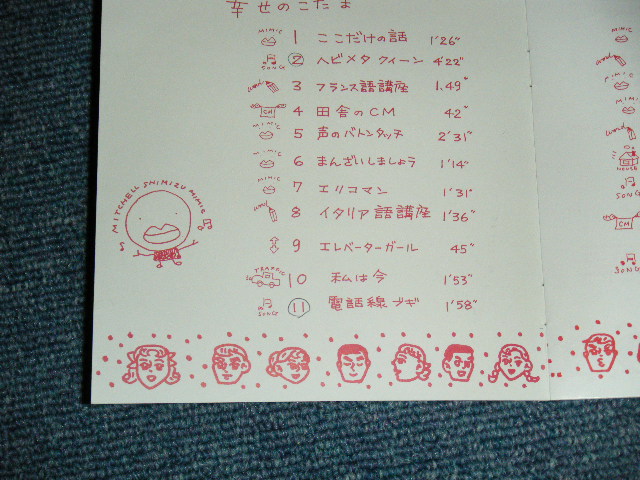 幸せのこだま
MIMIC 1 ここだけの話 1'26"
SONG 2 ヘビメタ クィーン 4'22"
3 フランス語講座 1.49"
CM 4 田舎のCM 42"
MIMIC 5 声のバトンタッチ 2'31"
MIMIC 6 まんざいしましょう 1'14"
MIMIC 7 エリコマン 1'31"
8 イタリア語講座 1'36"
9 エレベーターガール 45"
TRAFFIC 10 私は今 1'53"
SONG 11 電話線ブギ 1'58"
MITCHELL SHIMIZU MIMIC
MIMIC
SONG
MIMIC
MIMIC
SONG
CM
SONG